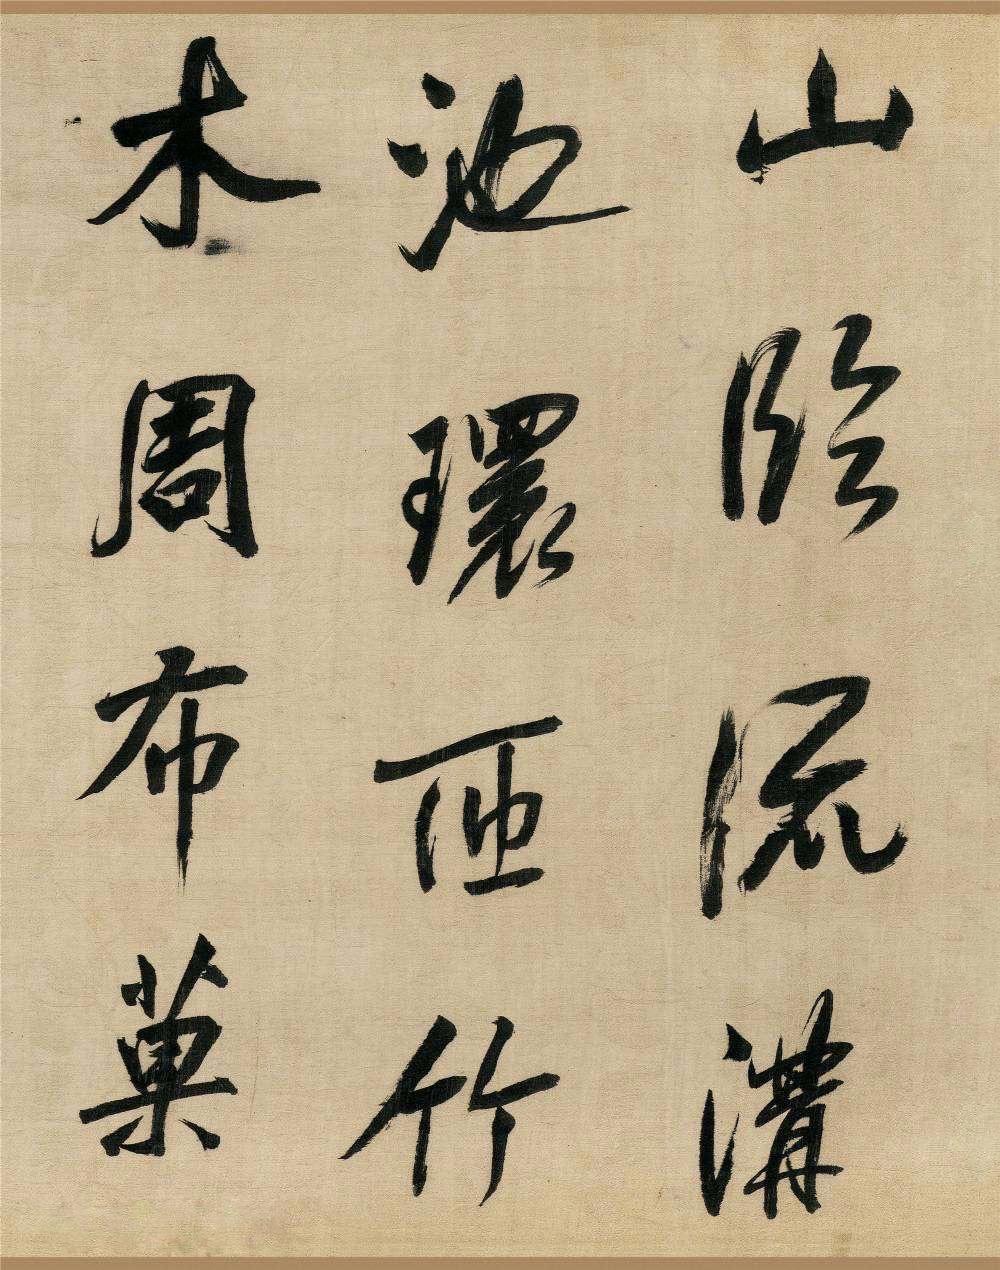 山臨流溝
池環匝竹
木周布菓